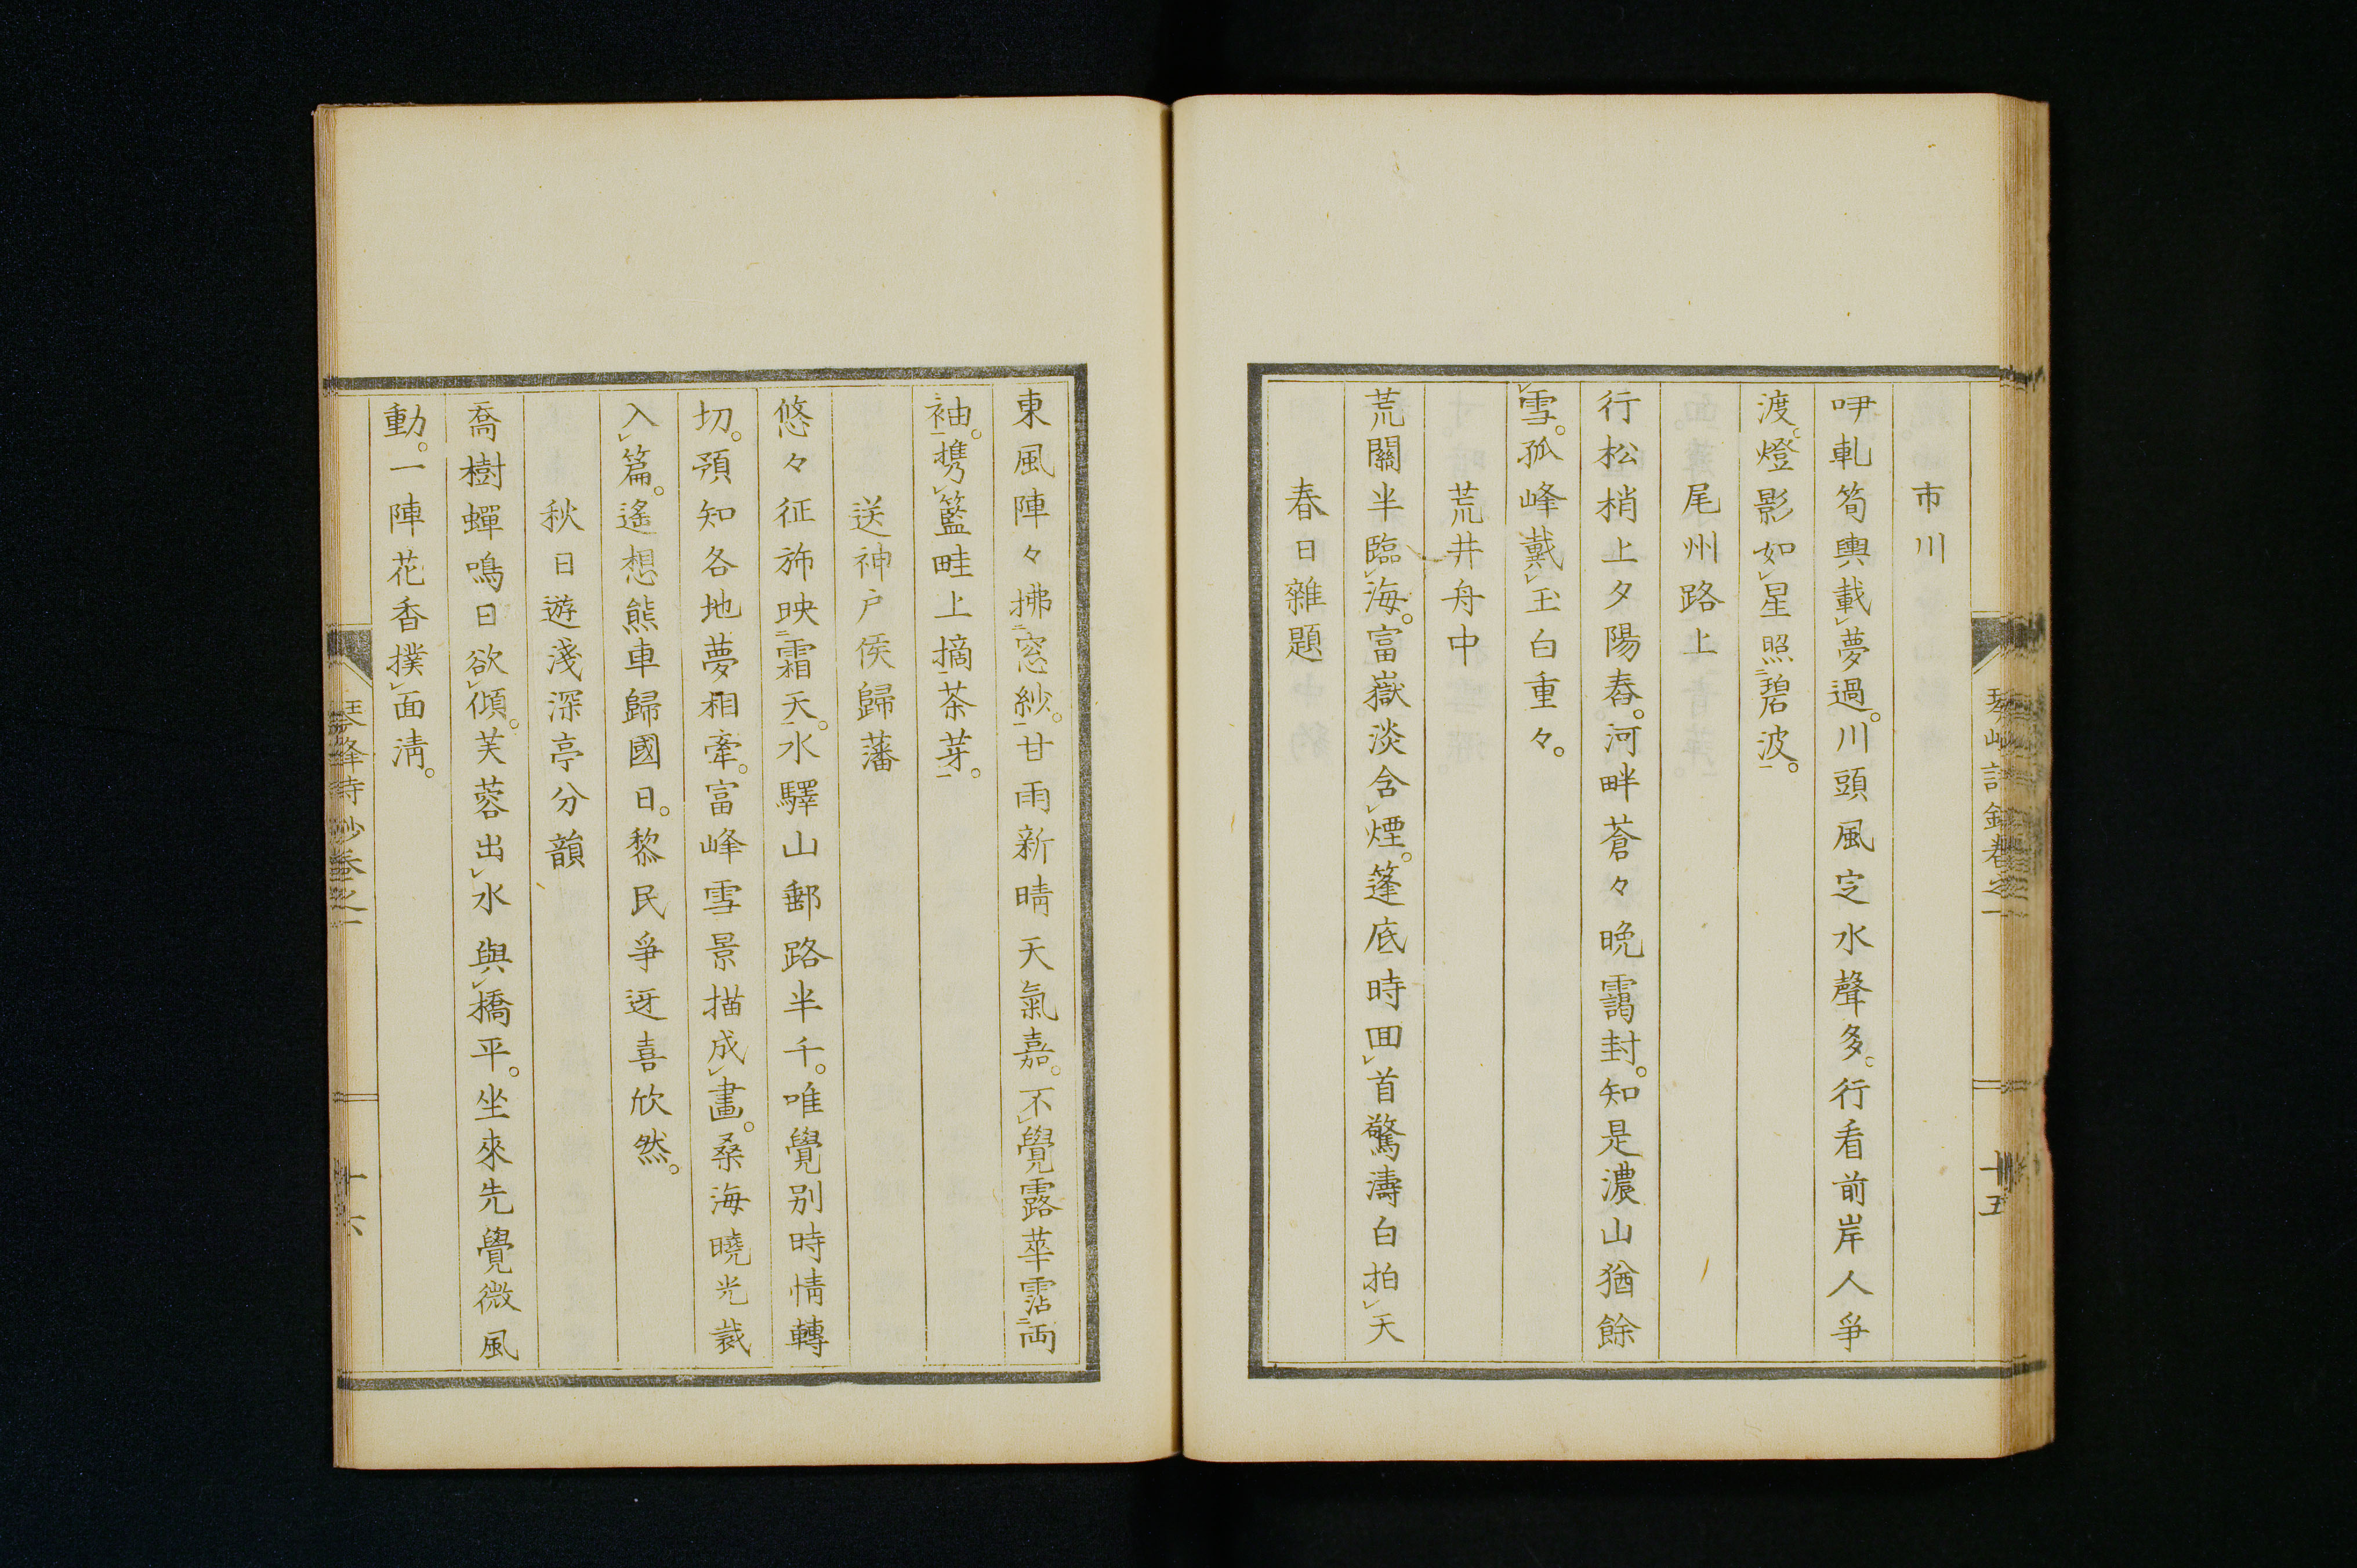 市川
咿軋筍輿載夢過。川頭風定水聲多。行看前岸人爭
渡。燈影如星照碧波。
尾州路上
行松梢上夕陽舂。河畔蒼々晚靄封。知是濃山猶餘
雪。孤峰戴玉白重々。
荒井舟中
荒關半臨海。富嶽淡含煙。篷底時囬首驚濤白拍天
春日雜題
東風陣々拂窓紗。甘雨新晴天氣嘉。不覺露華霑両
袖。携籃畦上摘茶芽。
送神戶侯歸藩
悠々征斾映霜天。水驛山郵路半千。唯覺別時情轉
切。預知各地夢相牽。富峰雪景描成畫。桑海曉光裁
入篇。遙想熊車歸國日。黎民爭迓喜欣然。
秋日遊淺深亭分韻
喬樹蟬鳴日欲傾。芙蓉出水與橋平。坐來先覺微風
動。一陣花香撲面淸。